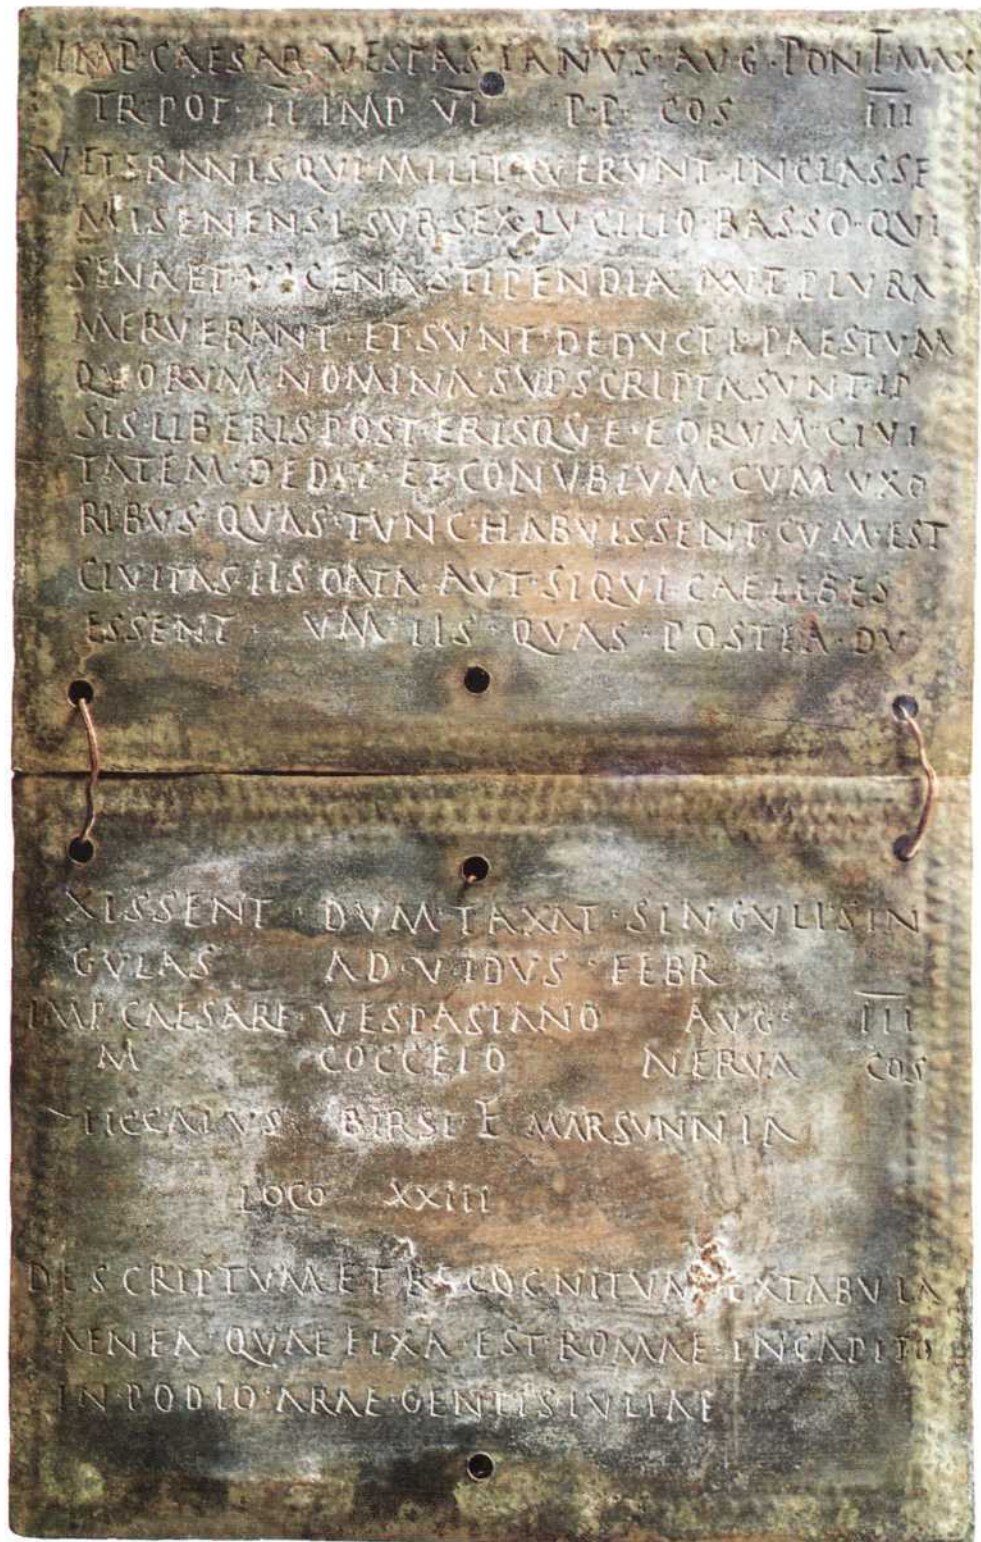 IMP·CAESAR·VESPASIANVS·AVG·PONT MAX
TR·POT·II IMP VI P·P· COS III
VETERANIS QVI MILITAVERVNT·IN CLASSE
MISENENSI·SVB·SEX·LVCILIO BASSO·QVI
SENA ET VICENA STIPENDIA AVT PLVRA
MERVERANT·ET·SVNT·DEDVCTI·PAESTVM
QVORVM·NOMINA SVPSCRIPTA SVNT IP
SIS LIBERIS POSTERISQVE·EORVM·CIVI
TATEM·DEDIT ET CONVBIVM·CVM VXO
RIBVS QVAS·TVNC HABVISSENT·CVM·EST
CIVITAS·IIS DATA AVT·SIQVI CAELIBES
ESSENT VM IIS·QVAS·POSTEA·DV
XISSENT·DVM·TAXAT·SINGVLI SIN
GVLAS AD·V IDVS·FEBR
IMP·CAESARE VESPASIANO AVG· III
M COCCEIO NERVA COS
BIRSI F MARSVNNIA
LOCO XXIII
DESCRIPTVM ET RECOGNITVM EX TABVLA
AENEA QVAE FIXA EST ROMAE·IN CAPITO
IN PODIO·ARAE·GENTIS IVLIAE